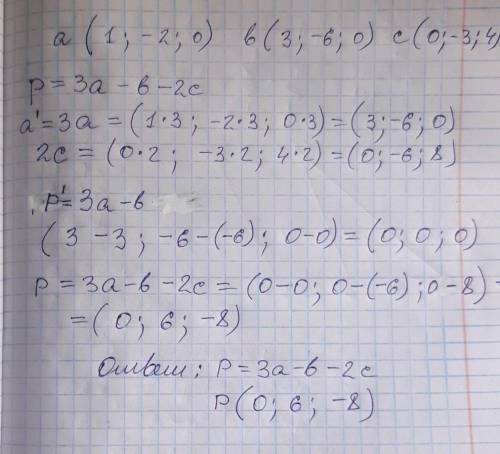 a (1; -2; 0) в(3; -6; 0) c(0; -3; 4)
p = 3a - в - 2c
a' = 3a = (1·3; -2·3; 0·3) = (3; -6; 0)
2c = (0·2; -3·2; 4·2) = (0; -6; 8)
p' = 3a - в
(3 - 3; -6 - (-6); 0-0) = (0; 0; 0)
p = 3a - в - 2c = (0-0; 0-(-6); 0-8) =
= (0; 6; -8)
Ответ: p = 3a - в - 2c
p(0; 6; -8)